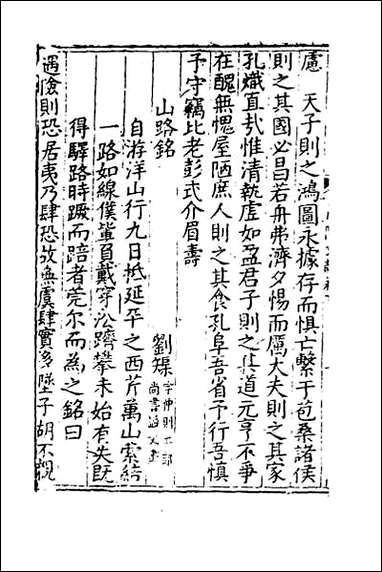 慮　天子則之鴻圖永據存而惧亡繫于苞桑諸侯
則之其國必昌若舟弗濟夕惕而厲大夫則之其家
孔熾直哉惟清執虚如盈君子則之其道元亨不爭
在醜無愧屋陋庶人則之其食孔阜吾省予行吾慎
予守竊比老彭式介眉壽
山路銘
劉榘 字仲則工部 尚書諡文
自游洋山行九日抵延平之西芹萬山索結
一路如線僕蜚負戴穿沿躋攀未始有失既
得驛路時蹶而踣者莞尓而為之銘曰
遇險則恐居夷乃肆恐故無虞肆實多墜子胡不覌